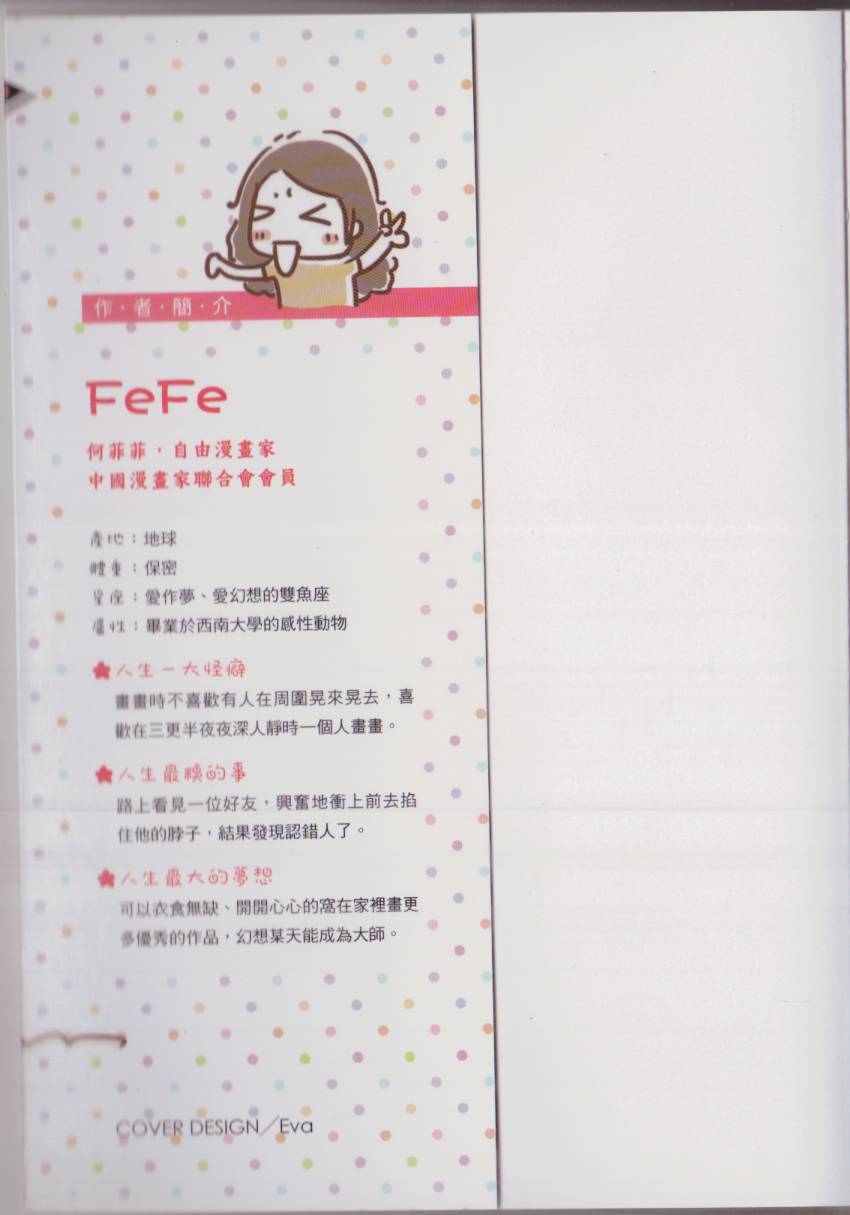 作·者·簡·介
FeFe
何菲菲，自由漫畫家
中國漫畫家聯合會會員
產地：地球
體重：保密
星座：愛作夢、愛幻想的雙魚座
屬性：畢業於西南大學的感性動物
人生一大怪癖
畫畫時不喜歡有人在周圍晃來晃去，喜
歡在三更半夜夜深人靜時一個人畫畫。
人生最糗的事
路上看見一位好友，興奮地衝上前去掐
住他的脖子，結果發現認錯人了。
人生最大的夢想
可以衣食無缺、開開心心的窩在家裡畫更
多優秀的作品，幻想某天能成為大師。
COVER DESIGN／Eva